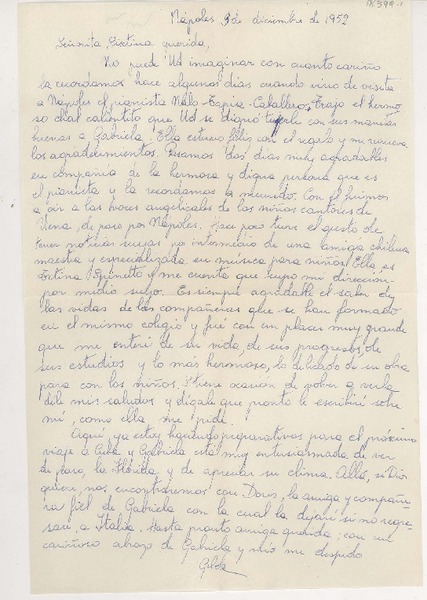 Nápoles 3 de diciembre de 1952
Señorita, Cristina querida,
No puede Ud imaginar con cuanto cariño
la recordamos hace algunos días cuando vino de visita
a Nápoles el pianista Nalo Tapia Caballero. Trajo el hermo
so chal calentito que Ud se dignó tejerle con sus manitas
buenas a Gabriela! Ella estuvo feliz con el regalo y me renueva
los agradecimientos. Pasamos dos días muy agradables
en compañía de la hermosa y digna persona que es
el pianista y la recordamos a menudo. Con él fuimos
a oír a las voces angelicales de los niños cantores de
Viena, de paso por Nápoles. Hace poco tuve el gusto de
tener noticias suyas por intermedio de una amiga chilena
maestra y especializada en música para niños. Ella, es
Cristina y me cuenta que supo mi dirección
por medio suyo. Es siempre agradable el saber de
las vidas de las compañeras que se han formado
en el mismo colegio y fué con un placer muy grande
que me enteré de su vida, de sus progresos, de
sus estudios y lo más hermoso, lo delicado de su obra
para con los niños. Si tiene ocasión de volver a verla
dile mis saludos y dígale que pronto le escribiré sobre
mí, como ella me pide!
Aquí, ya estoy haciendo preparativos para el próximo
viaje a Cuba y Gabriela está muy entusiasmada de ver
de paso, la Florida y de apreciar su clima. Allá, si Dios
quiere, nos encontraremos con Doris, la amiga y compañe
ra fiel de Gabriela con la cual la dejaré si no regre
sara a Italia. Hasta pronto amiga querida; con un
cariñoso abrazo de Gabriela y mío me despido
Gilda